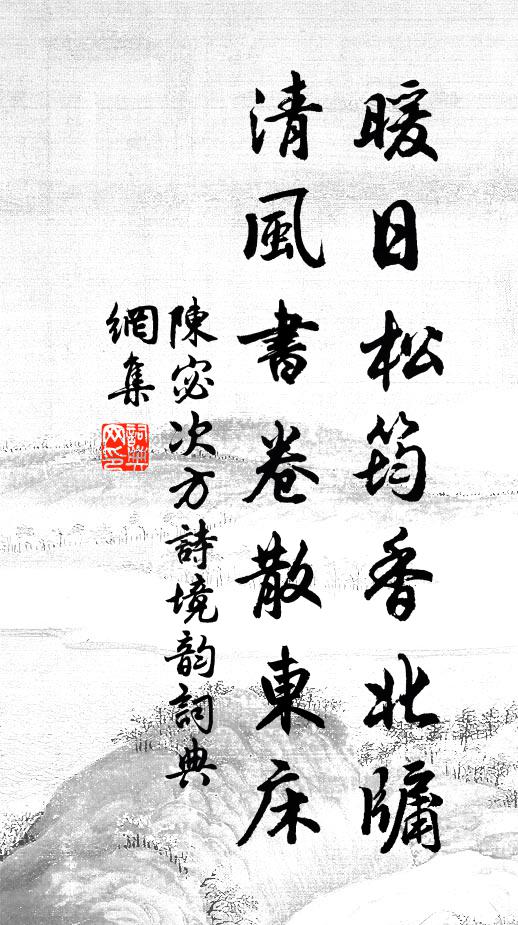 暖日松筠香北牖
清風書卷散東床
陳宓次方詩境韵詞典
網集